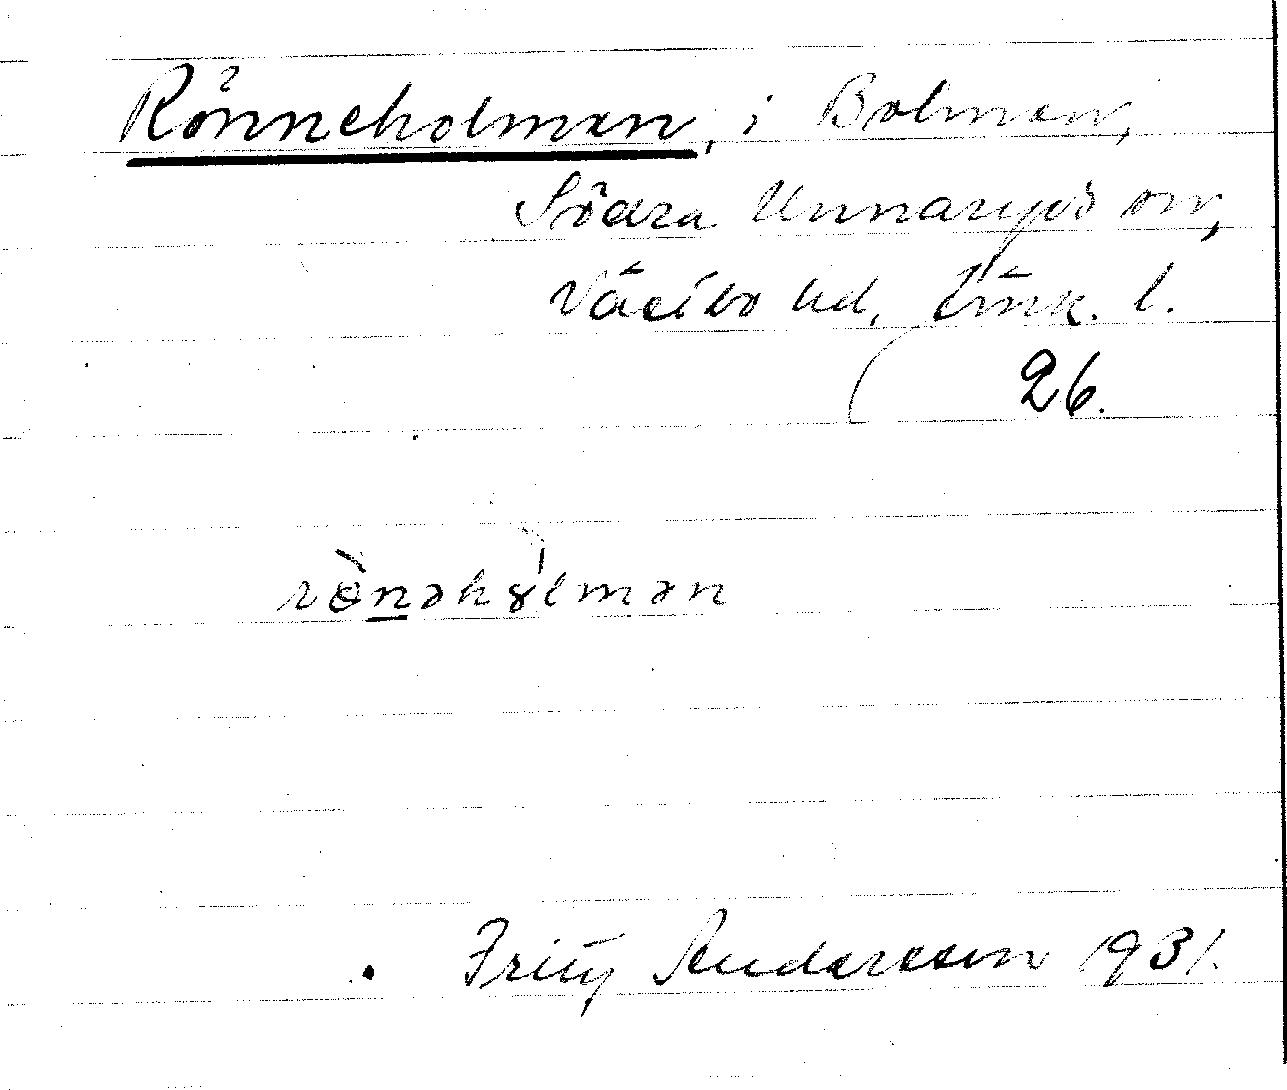 Rönneholmen, i Bolmen,
Södra Unnaryds sn,
Västbo hd, Jönk. l.
26.
rònəhólmən
Fritz Andersson 1931.